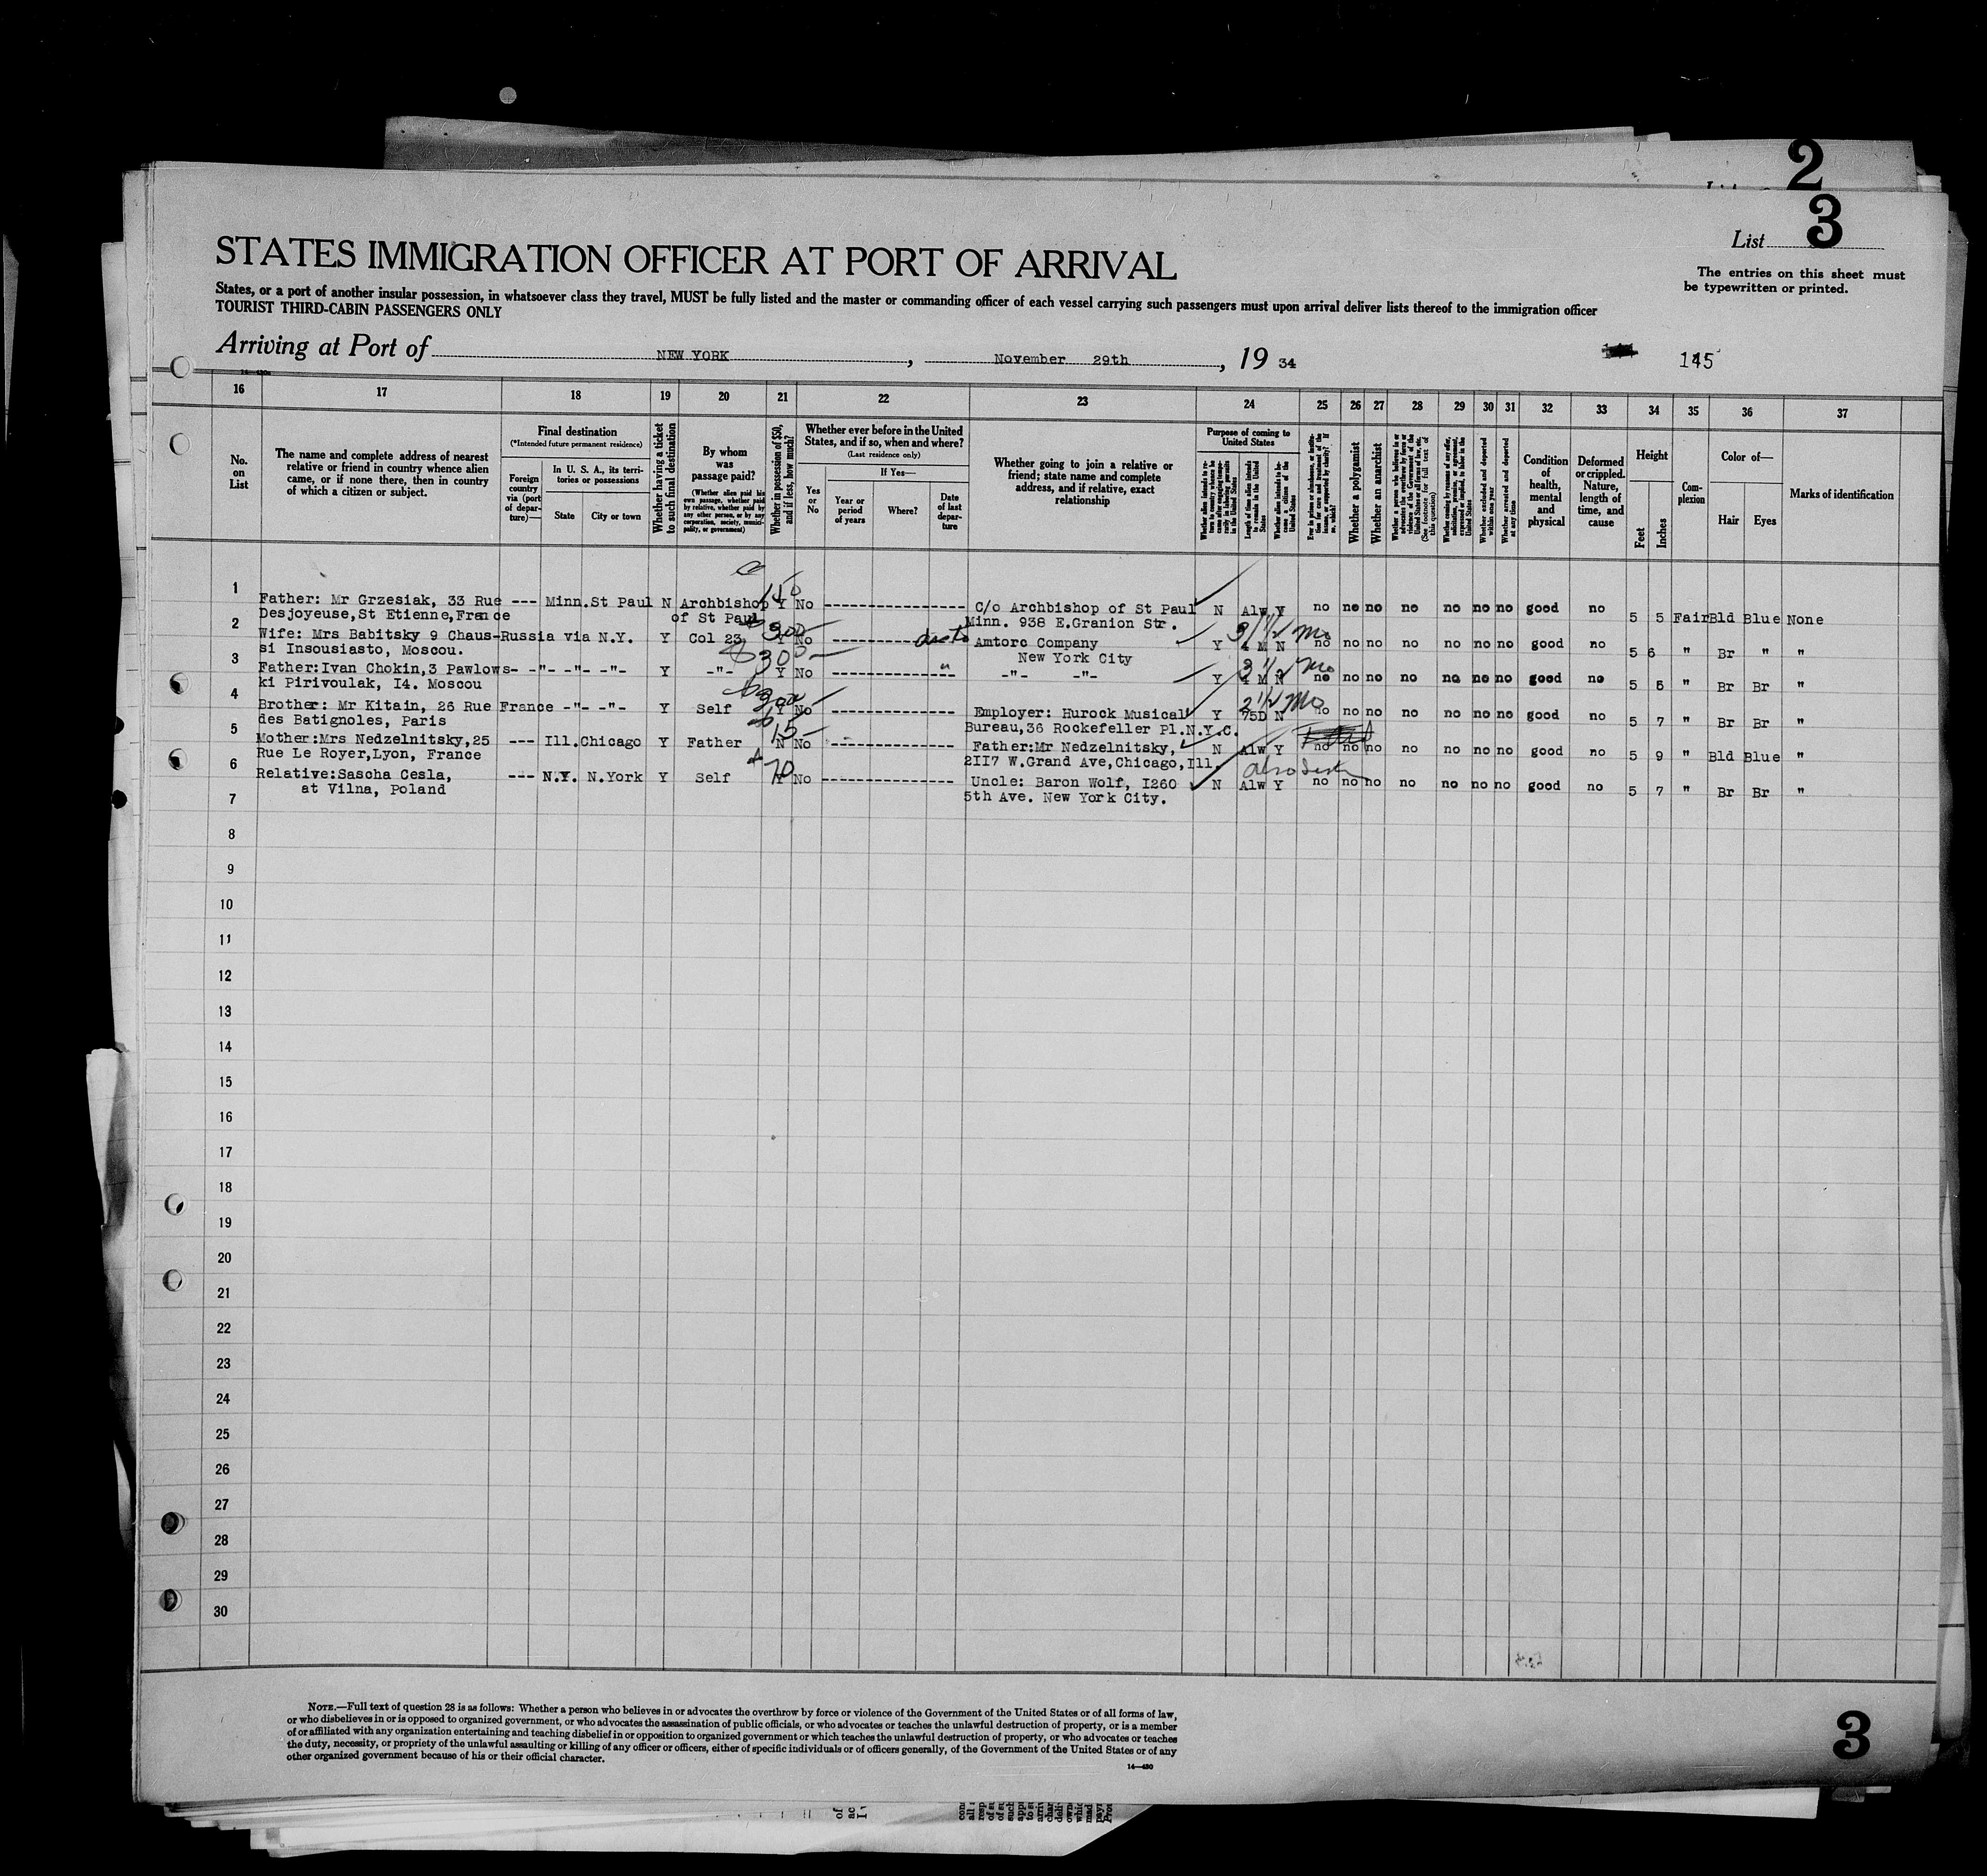 2
List 3
STATES IMMIGRATION OFFICER AT PORT OF ARRIVAL
The entries on this sheet must
be typewritten or printed.
States, or a port of another insular possession, in whatsoever class they travel, MUST be fully listed and the master or commanding officer of each vessel carrying such passengers must upon arrival deliver lists thereof to the immigration officer
TOURIST THIRD-CABIN PASSENGERS ONLY
Arriving at Port of NEW YORK, November 29th, 19 34
145
16 17 18 19 20 21 22 23 24 25 26 27 28 29 30 31 32 33 34 35 36 37
No. on List
The name and complete address of nearest
relative or friend in country whence alien
came, or if none there, then in country
of which a citizen or subject.
Final destination
(*Intended future permanent residence)
Foreign country via (port of departure)—
In U. S. A., its territories or possessions
State
City or town
Whether having a ticket to such final destination
By whom was passage paid?
(Whether alien paid his own passage, whether paid by relative, whether paid by any other person, or by any corporation, society, municipality, or government)
Whether in possession of $50, and if less, how much?
Whether ever before in the United States, and if so, when and where?
(Last residence only)
Yes or No
If Yes—
Year or period of years
Where?
Date of last departure
Whether going to join a relative or
friend; state name and complete
address, and if relative, exact
relationship
Purpose of coming to United States
Whether alien intends to return to country whence he came after engaging temporarily in laboring pursuits in the United States
Length of time alien intends to remain in the United States
Whether alien intends to become a citizen of the United States
Ever in prison or almshouse, or institution for care and treatment of the insane, or supported by charity? If so, which?
Whether a polygamist
Whether an anarchist
Whether a person who believes in or advocates the overthrow by force or violence of the Government of the United States or all forms of law, etc. (See footnote for full text of this question)
Whether coming by reason of any offer, solicitation, promise, or agreement, expressed or implied, to labor in the United States
Whether excluded and deported within one year
Whether arrested and deported at any time
Condition of health, mental and physical
Deformed or crippled. Nature, length of time, and cause
Height
Feet
Inches
Complexion
Color of—
Hair
Eyes
Marks of identification
1 Father: Mr Grzesiak, 33 Rue --- Minn. St Paul N Archbishop 150 Y No ---------------- C/o Archbishop of St Paul N Alw Y no no no no no no no good no 5 5 Fair Bld Blue None
Desjoyeuse, St Etienne, France of St Paul Minn. 938 E.Granion Str.
2 Wife: Mrs Babitsky 9 Chaus- Russia via N.Y. Y Col 23 300 Y No ---------------- Amtorc Company Y 4 M N 3 1/2 Mo no no no no no no no good no 5 6 " Br " "
si Insousiasto, Moscou. New York City
3 Father:Ivan Chokin,3 Pawlows- -"- -"- -"- Y -"- 300 Y No ---------------- -"- -"- Y 4 M N 3 1/2 Mo no no no no no no no good no 5 6 " Br Br "
ki Pirivoulak, I4. Moscou
4 Brother: Mr Kitain, 26 Rue France -"- -"- Y Self 300 Y No ---------------- Employer: Hurock Musical Y 75D N 2 1/2 Mo no no no no no no no good no 5 7 " Br Br "
des Batignoles, Paris Bureau,36 Rockefeller Pl.N.Y.C.
5 Mother:Mrs Nedzelnitsky,25 --- Ill. Chicago Y Father 15 N No ---------------- Father:Mr Nedzelnitsky, N Alw Y no no no no no no no good no 5 9 " Bld Blue "
Rue Le Royer,Lyon, France 2II7 W.Grand Ave,Chicago,Ill.
6 Relative:Sascha Cesla, --- N.Y. N.York Y Self 70 Y No ---------------- Uncle: Baron Wolf, I260 N Alw Y no no no no no no no good no 5 7 " Br Br "
at Vilna, Poland 5th Ave. New York City.
7
8
9
10
11
12
13
14
15
16
17
18
19
20
21
22
23
24
25
26
27
28
29
30
NOTE.—Full text of question 28 is as follows: Whether a person who believes in or advocates the overthrow by force or violence of the Government of the United States or of all forms of law,
or who disbelieves in or is opposed to organized government, or who advocates the assassination of public officials, or who advocates or teaches the unlawful destruction of property, or is a member
of or affiliated with any organization entertaining and teaching disbelief in or opposition to organized government or which teaches the unlawful destruction of property, or who advocates or teaches
the duty, necessity, or propriety of the unlawful assaulting or killing of any officer or officers, either of specific individuals or of officers generally, of the Government of the United States or of any
other organized government because of his or their official character.
14—430
3